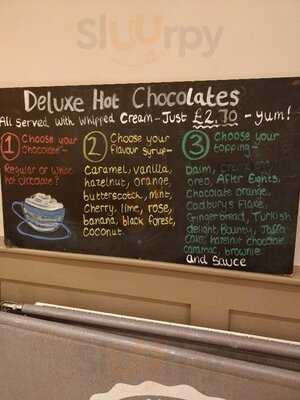 Sluurpy
Deluxe Hot Chocolates
All Served with Whipped Cream - Just £2.70 - yum!
1 Choose your chocolate -
Regular or White hot chocolate?
2 Choose your flavour syrup -
Caramel, vanilla,
hazelnut, orange,
butterscotch, mint,
Cherry, lime, rose,
banana, black forest,
coconut.
3 Choose your topping -
oreo, After Eights,
Chocolate orange,
Cadburys Flake,
Gingerbread, Turkish
delight Bounty, Jaffa
cake, hazelnut chocolate
caramac, brownie
and sauce